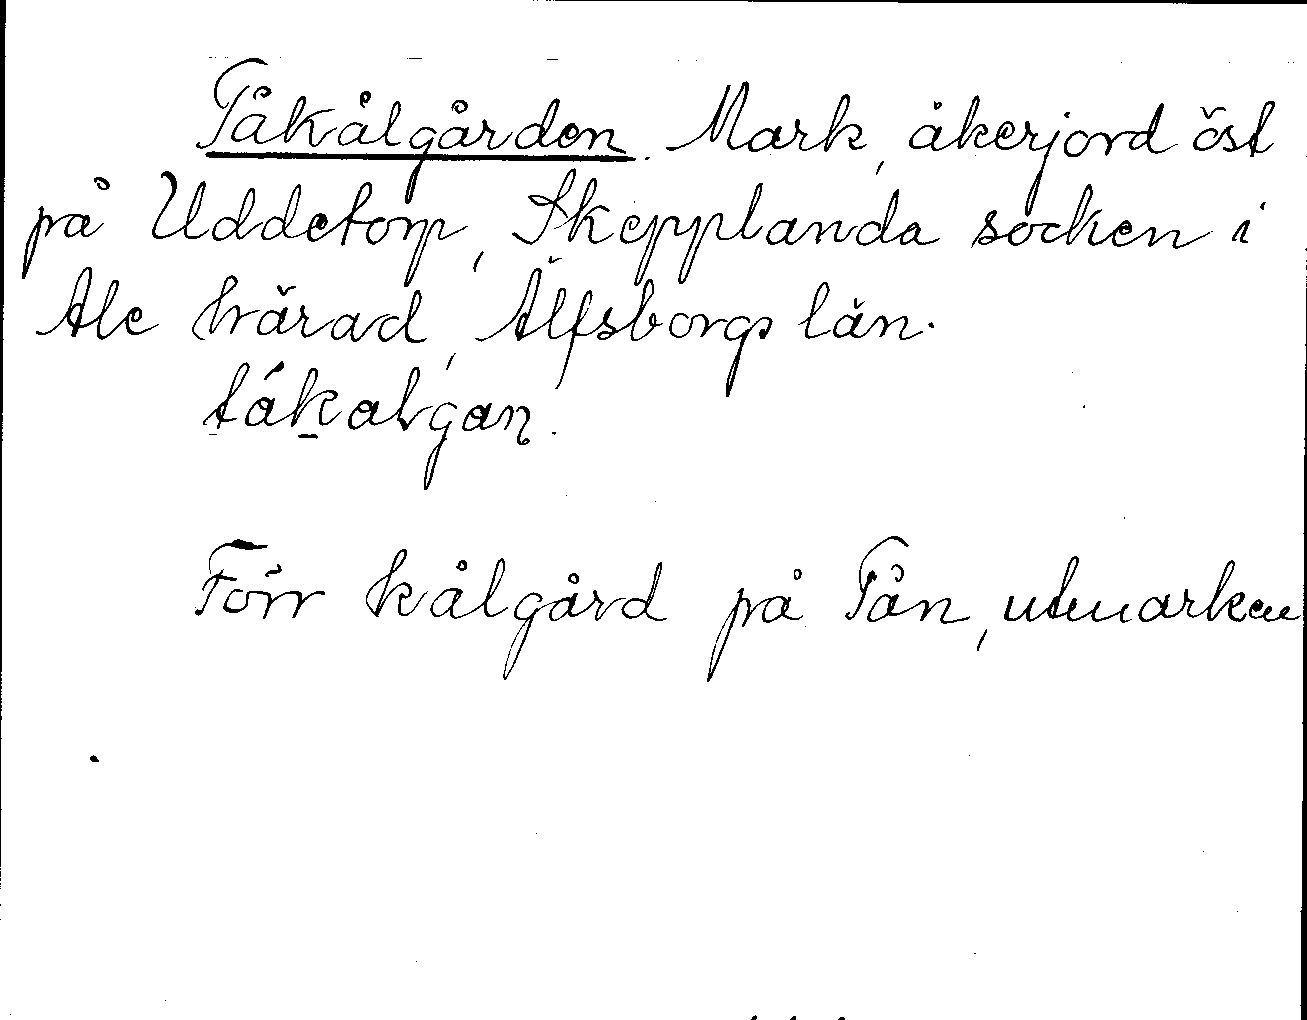 Tåkålgården. Mark, åkerjord öst
på Uddetorp, Skepplanda socken i
Ale härad, Älfsborgs län.
tåkalgan.
Förr kålgård på Tån, utmarken